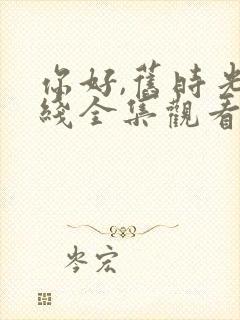 你好,舊時光
綫全集觀看
岑宏